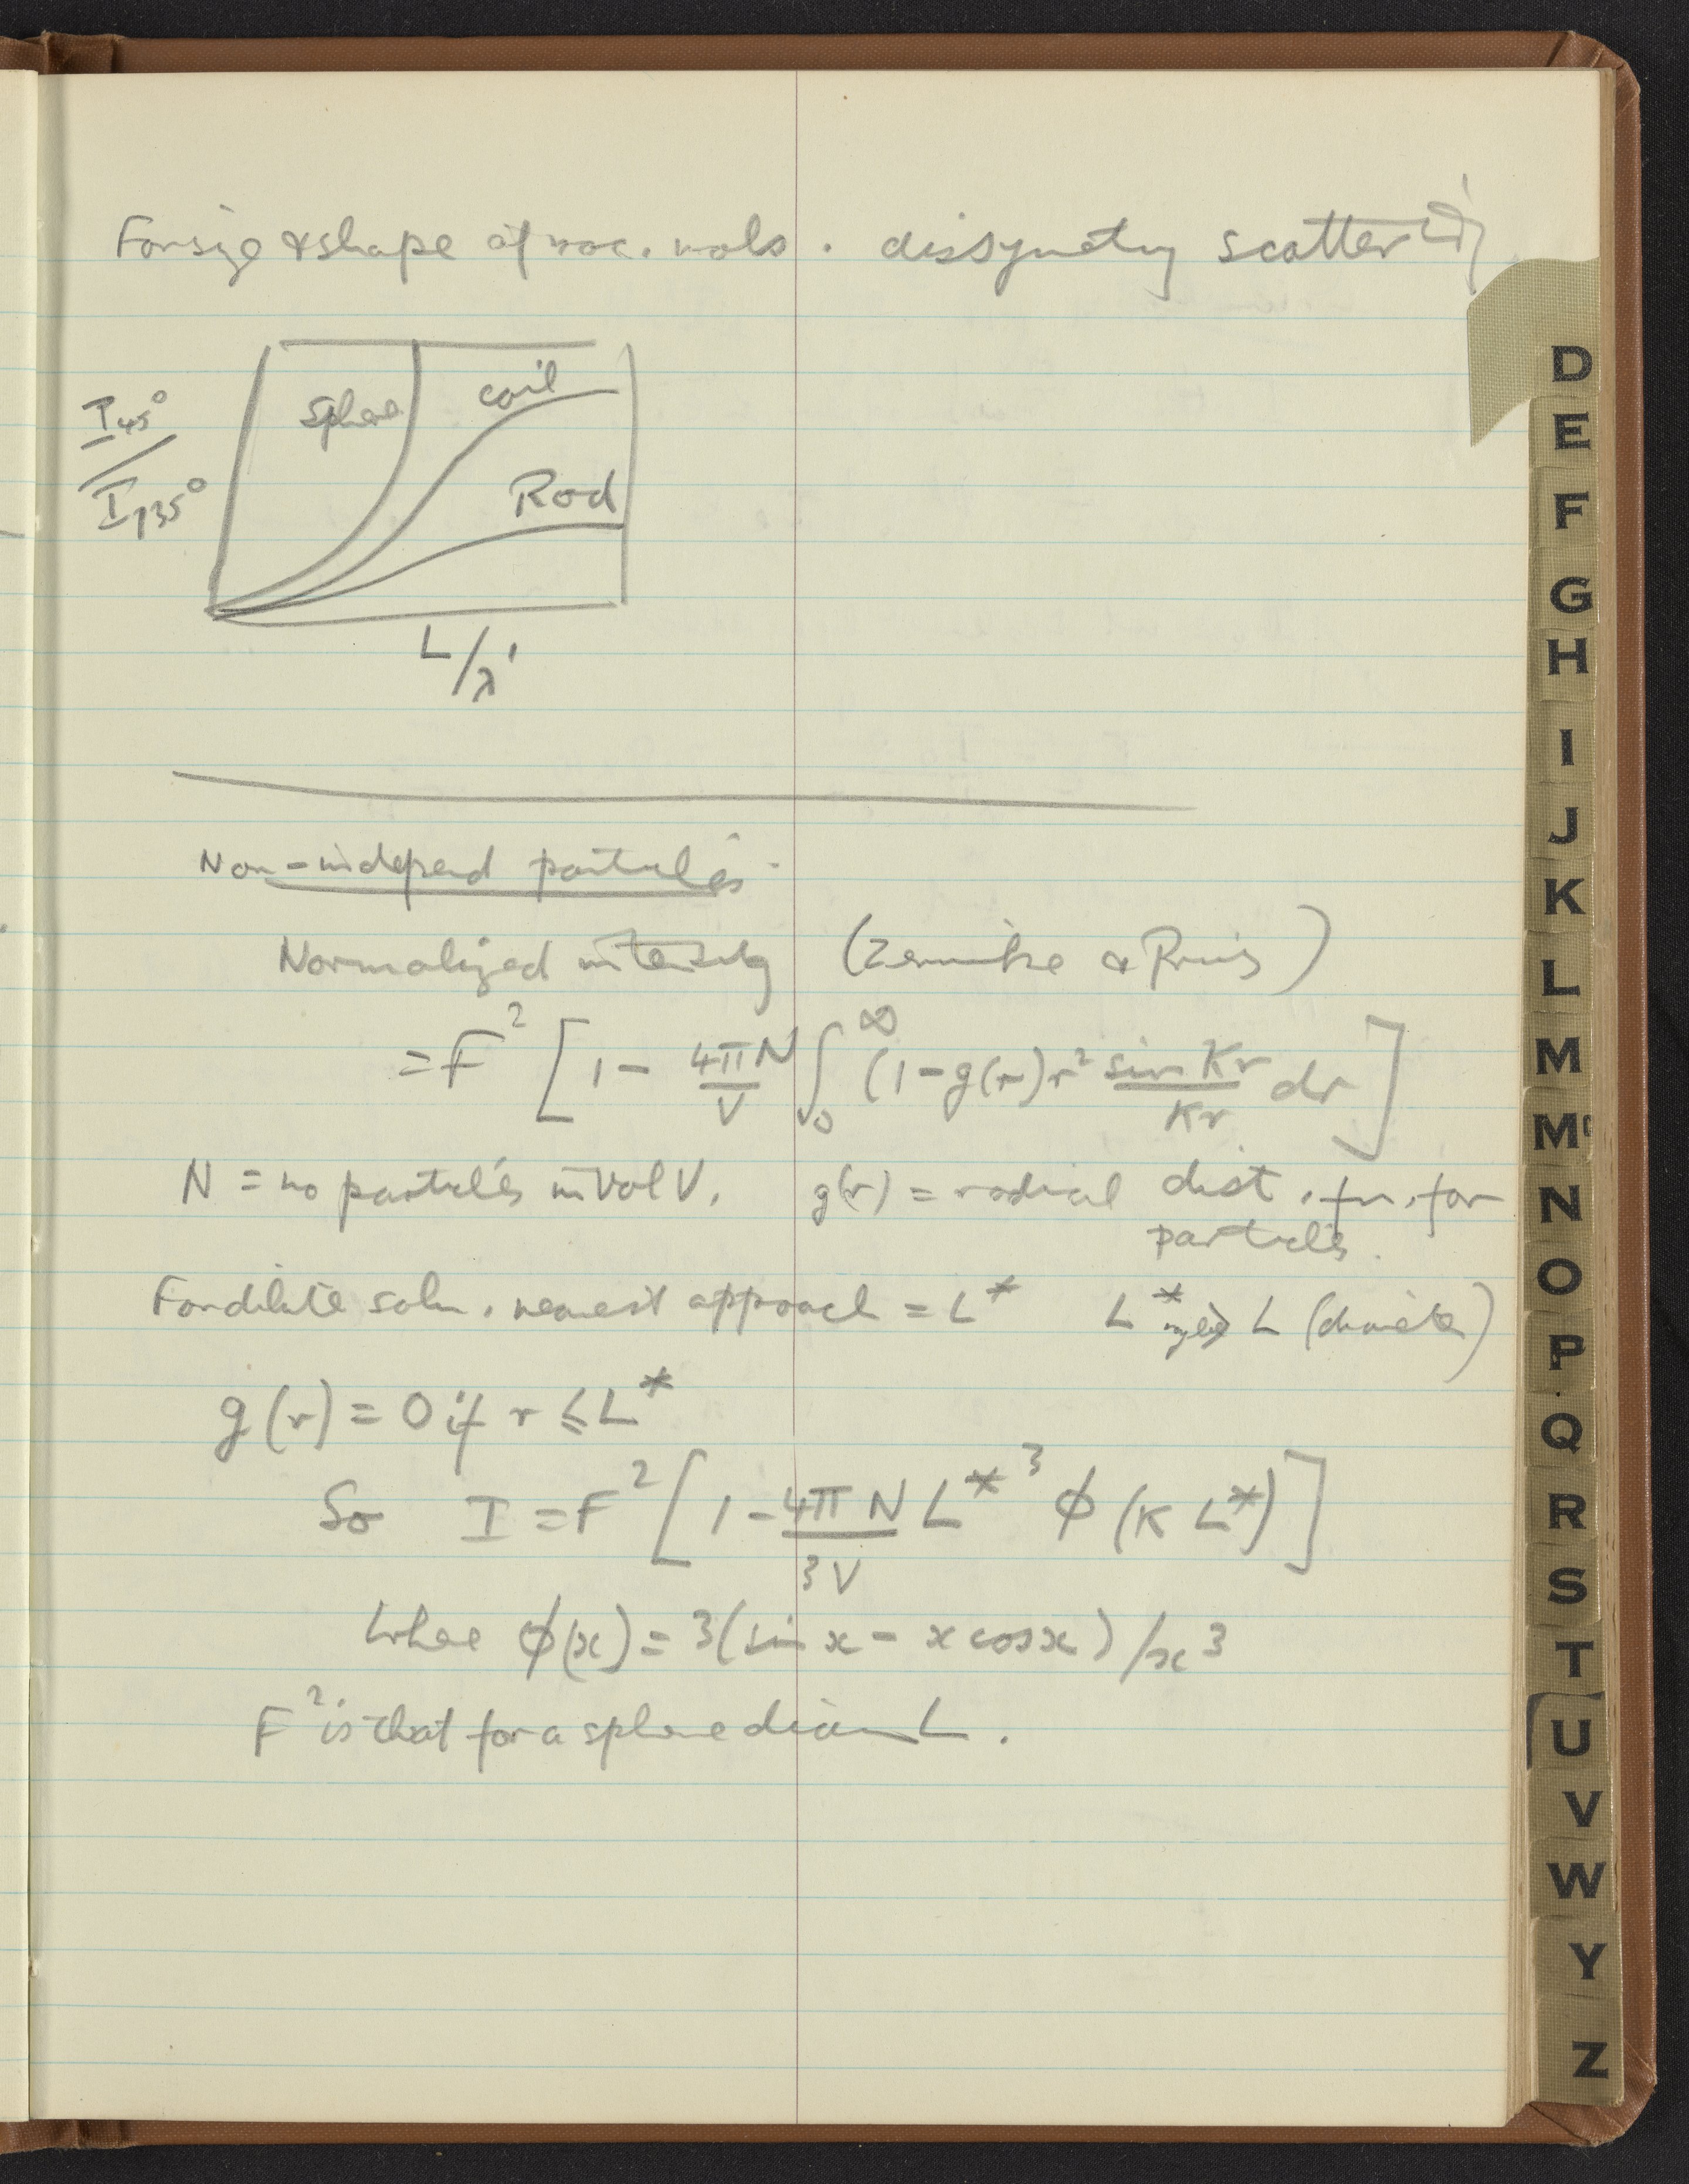 For size & shape of mac. mols. dissymetry scattering
I45°
/
I135°
Sphere
coil
Rod
L/λ'
Non-independ particles
Normalized intensity (Zernike & Prins)
= F² [1 - 4πN/V ∫₀^∞ (1-g(r)) r² sin Kr/Kr dr]
N = no particles in vol V. g(r) = radial dist. fn. for
particles.
For dilute soln. nearest approach = L* L* > L (diameter)
g(r) = 0 if r ≤ L*
So I = F² [1 - 4πN/3V L*³ φ(K L*)]
where φ(x) = 3(sin x - x cos x)/x³
F² is that for a sphere diam L.
D
E
F
G
H
I
J
K
L
M
Mc
N
O
P
Q
R
S
T
U
V
W
Y
Z